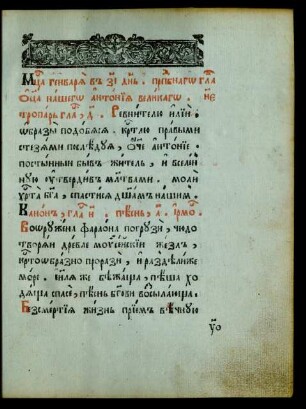 Мц҃а генварѧ въ з҃і дн҃ь . прпⷣбнагѡ гла
Ѻц҃а нашегѡ антѡнїѧ великагѡ .
тропарь гла , д҃ . Ревнителю илїи
ѡбразы подобѧсѧ . крⷭ҇тлю правыми
стезѧми послѣдуѧ , ѻч҃е антѡнїе .
постынныи бывъ житель , и вселен
ную ѹтвердивъ мл҃твами . моли
хрⷭ҇та бг҃а , спастисѧ дш҃амъ нашимъ
Канонъ , гла и҃ . пѣснь , а҃ . ірмоⷭ
Вооружена фараона погрузи , чюдо
творѧи древле моѵсейскїи жезлъ ,
крⷭ҇тоѡбразно поразивъ , и раздѣлиже
море . и҃илѧ же бѣжаща , пѣша хо
дѧща спасе , пѣснь бг҃ови восылающа .
Безсмертїѧ жизнь прїемъ вѣчную
ѹо